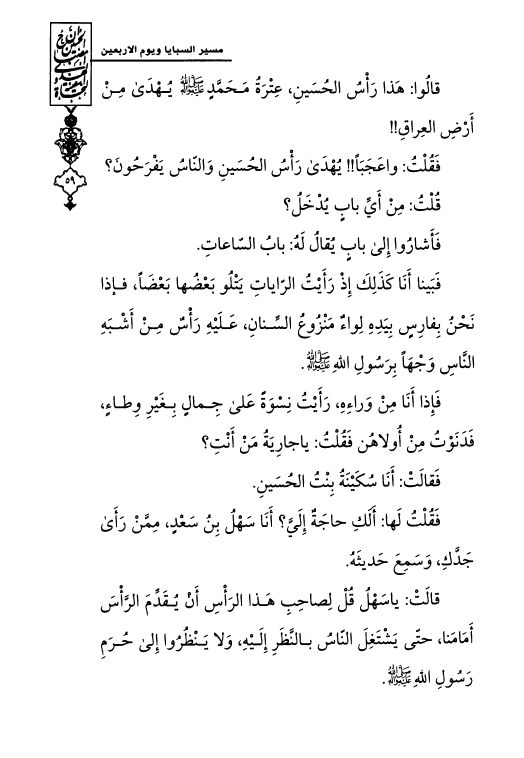 مسير السبايا ويوم الاربعين
٥٩
قالُوا: هَذا رَأْسُ الحُسَينِ، عِتْرَةُ مَحَمَّدٍ ﷺ يُهْدَىٰ مِنْ
أَرْضِ العِراقِ!!
فَقُلْتُ: واعَجَبَاً!! يُهْدَىٰ رَأْسُ الحُسَينِ وَالنّاسُ يَفْرَحُونَ؟
قُلْتُ: مِنْ أَيِّ بابٍ يُدْخَلُ؟
فَأَشارُوا إِلىٰ بابٍ يُقالُ لَهُ: بابُ السّاعاتِ.
فَبَينا أَنَا كَذَلِكَ إِذْ رَأَيْتُ الرّاياتِ يَتْلُو بَعْضُها بَعْضَاً، فَإذا
نَحْنُ بِفارِسٍ بِيَدِهِ لِواءٌ مَنْزُوعُ السِّنانِ، عَلَيْهِ رَأْسٌ مِنْ أَشْبَهِ
النَّاسِ وَجْهَاً بِرَسُولِ اللهِ ﷺ.
فَإِذا أَنَا مِنْ وَراءِهِ، رَأَيْتُ نِسْوَةً عَلىٰ جِمالٍ بِغَيْرِ وِطاءٍ،
فَدَنَوْتُ مِنْ أُولاهُن فَقُلْتُ: ياجارِيَةُ مَنْ أَنْتِ؟
فَقالَتْ: أَنَا سُكَيْنَةُ بِنْتُ الحُسَينِ.
فَقُلْتُ لَها: أَلَكِ حاجَةٌ إِلَيَّ؟ أَنَا سَهْلُ بِنُ سَعْدٍ، مِمَّنْ رَأَىٰ
جَدَّكِ، وَسَمِعَ حَديثَهُ.
قالَتْ: ياسَهْلُ قُلْ لِصاحِبِ هَذا الرَأْسِ أَنْ يُقَدِّمَ الرَّأْسَ
أَمَامَنا، حتّى يَشْتَغِلَ النّاسُ بالنَّظَرِ إِلَيْهِ، وَلا يَنْظُرُوا إِلىٰ حُرَمِ
رَسُولِ اللهِ ﷺ.